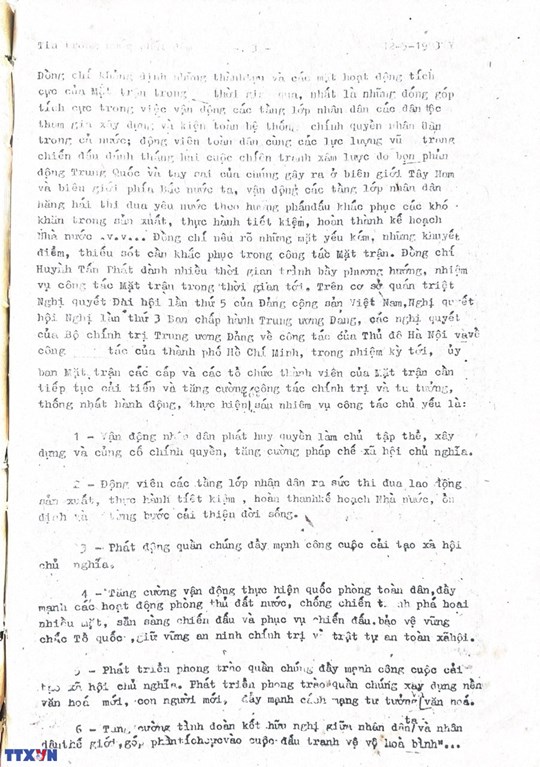 Tin trong
- 3 -
Đồng chí khẳng định những thành tựu và các mặt hoạt động tích
cực của Mặt trận trong thời gian qua, nhất là những đóng góp
tích cực trong việc vận động các tầng lớp nhân dân các dân tộc
tham gia xây dựng và kiện toàn hệ thống chính quyền nhân dân
trong cả nước; động viên toàn dân cùng các lực lượng vũ trong
chiến đấu đánh thắng hai cuộc chiến tranh xâm lược do bọn phản
động Trung Quốc và tay sai của chúng gây ra ở biên giới Tây Nam
và biên giới phía Bắc nước ta, vận động các tầng lớp nhân dân
hăng hái thi đua yêu nước theo hướng phấnđấu khắc phục các khó
khăn trong sản xuất, thực hành tiết kiệm, hoàn thành kế hoạch
Nhà nước .v.v... Đồng chí nêu rõ những mặt yếu kém, những khuyết
điểm, thiếu sót cần khắc phục trong công tác Mặt trận. Đồng chí
Huỳnh Tấn Phát dành nhiều thời gian trình bày phương hướng, nhiệm
vụ công tác Mặt trận trong thời gian tới, Trên cơ sở quán triệt
Nghị quyết Đại hội lần thứ 5 của Đảng cộng sản Việt Nam, Nghị quyết
hội Nghị lần thứ 3 Ban chấp hành Trung ương Đảng, các nghị quyết
của Bộ chính trị Trung ương Đảng về công tác của Thủ đô Hà Nội vàvề
công tác của thành phố Hồ Chí Minh, trong nhiệm kỳ tới, ủy
ban Mặt trận các cấp và các tổ chức thành viên của Mặt trận cần
tiếp tục cải tiến và tăng cường công tác chính trị và tư tưởng,
thống nhất hành động, thực hiện sáu nhiệm vụ công tác chủ yếu là:
1 - Vận động nhân dân phát huy quyền làm chủ tập thể, xây
dựng và củng cố chính quyền, tăng cường pháp chế xã hội chủ nghĩa.
2 - Động viên các tầng lớp nhân dân ra sức thi đua lao động
sản xuất, thực hành tiết kiệm, hoàn thànhkế hoạch Nhà nước, ổn
định và từng bước cải thiện đời sống.
3 - Phát động quần chúng đẩy mạnh công cuộc cải tạo xã hội
chủ nghĩa.
4 - Tăng cường vận động thực hiện quốc phòng toàn dân, đẩy
mạnh các hoạt động phòng thủ đất nước, chống chiến tranh phá hoại
nhiều mặt, sẵn sàng chiến đấu và phục vụ chiến đấu.bảo vệ vững
chắc Tổ quốc, giữ vững an ninh chính trị và trật tự an toàn xãhội.
5 - Phát triển phong trào quần chúng đẩy mạnh công cuộc cải
tạo xã hội chủ nghĩa. Phát triển phong trào quần chúng xây dựng nền
văn hoá mới, con người mới, đẩy mạnh cách mạng tư tưởng văn hoá.
6 - Tăng cường tình đoàn kết hữu nghị giữa nhân dân ta và nhân
dân thế giới, góp phần tích cực vào cuộc đấu tranh vì hoà bình"...
TTXVN